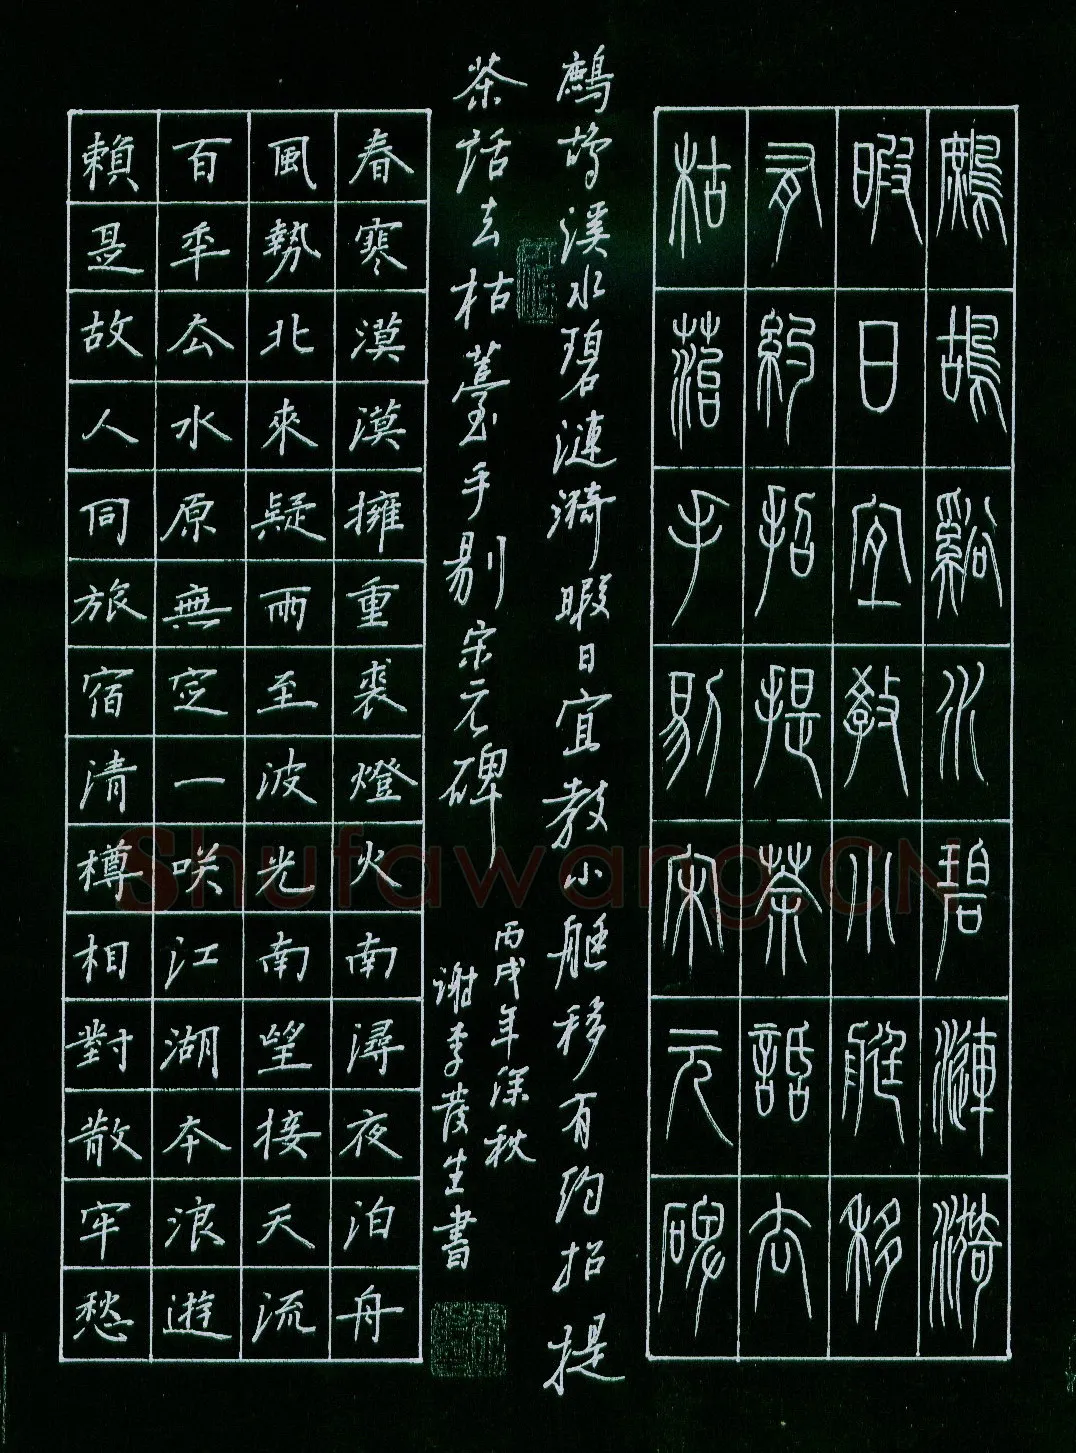 鷓鴣谿水碧漣漪
暇日宜教小艇移
有約招提茶話去
枯菭手剔宋元碑
鷓鴣溪水碧漣漪暇日宜教小艇移有約招提
茶話去枯薹手剔宋元碑
丙戌年深秋
谢生書
春寒漠漠擁重裘燈火南潯夜泊舟
風勢北來疑雨至波光南望接天流
百年云水原無定一咲江湖本浪遊
賴是故人同旅宿清樽相對散牢愁
Shufawang.CN